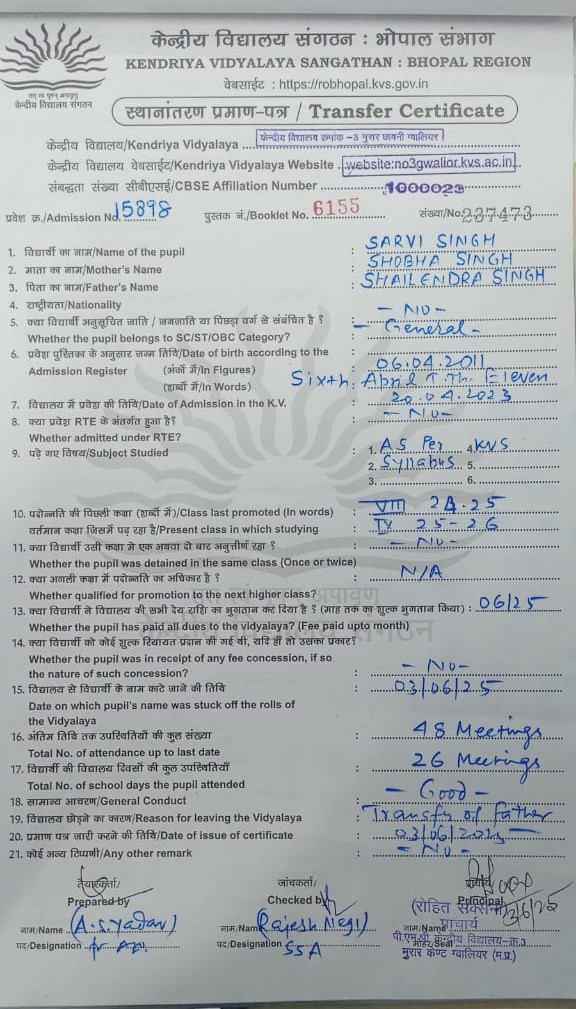 केन्द्रीय विद्यालय संगठन : भोपाल संभाग
KENDRIYA VIDYALAYA SANGATHAN : BHOPAL REGION
वेबसाईट : https://robhopal.kvs.gov.in
केन्द्रीय विद्यालय संगठन
स्थानांतरण प्रमाण-पत्र / Transfer Certificate
केन्द्रीय विद्यालय/Kendriya Vidyalaya केन्द्रीय विद्यालय क्रमांक -3 मुरार छावनी ग्वालियर
केन्द्रीय विद्यालय वेबसाईट/Kendriya Vidyalaya Website website:no3gwalior.kvs.ac.in
संबद्धता संख्या सीबीएसई/CBSE Affiliation Number 1000023
प्रवेश क्र./Admission No 15898 पुस्तक नं./Booklet No. 6155 संख्या/No. 237473
1. विद्यार्थी का नाम/Name of the pupil : SARVI SINGH
2. माता का नाम/Mother's Name : SHOBHA SINGH
3. पिता का नाम/Father's Name : SHAILENDRA SINGH
4. राष्ट्रीयता/Nationality :
- NO -
5. क्या विद्यार्थी अनुसूचित जाति / जनजाति या पिछड़ा वर्ग से संबंधित है ? - General -
Whether the pupil belongs to SC/ST/OBC Category? :
6. प्रवेश पुस्तिका के अनुसार जन्म तिथि/Date of birth according to the
Admission Register (अंकों में/In Figures) : 06.04.2011
(शब्दों में/In Words) Sixth April T. Th. Eleven
7. विद्यालय में प्रवेश की तिथि/Date of Admission in the K.V. : 20.04.2023
8. क्या प्रवेश RTE के अंतर्गत हुआ है? : - No -
Whether admitted under RTE?
9. पढ़े गए विषय/Subject Studied : 1. AS Per 4. KVS
2. Syllabus 5.
3. 6.
10. पदोन्नति की पिछली कक्षा (शब्दों में)/Class last promoted (In words) : VIII 24-25
वर्तमान कक्षा जिसमें पढ़ रहा है/Present class in which studying : IX 25-26
11. क्या विद्यार्थी उसी कक्षा में एक अथवा दो बार अनुत्तीर्ण रहा ? : - No -
Whether the pupil was detained in the same class (Once or twice)
12. क्या अगली कक्षा में पदोन्नति का अधिकार है ? : N/A
Whether qualified for promotion to the next higher class?
13. क्या विद्यार्थी ने विद्यालय की सभी देय राशि का भुगतान कर दिया है ? (माह तक का शुल्क भुगतान किया) : 06/25
Whether the pupil has paid all dues to the vidyalaya? (Fee paid upto month)
14. क्या विद्यार्थी को कोई शुल्क रियायत प्रदान की गई थी, यदि हाँ तो उसका प्रकार?
Whether the pupil was in receipt of any fee concession, if so
the nature of such concession? : - No -
15. विद्यालय से विद्यार्थी के नाम काटे जाने की तिथि : 03/06/25
Date on which pupil's name was stuck off the rolls of
the Vidyalaya
16. अंतिम तिथि तक उपस्थितियों की कुल संख्या : 48 Meetings
Total No. of attendance up to last date
17. विद्यार्थी की विद्यालय दिवसों की कुल उपस्थितियाँ : 26 Meetings
Total No. of school days the pupil attended
18. सामान्य आचरण/General Conduct : - Good -
19. विद्यालय छोड़ने का कारण/Reason for leaving the Vidyalaya : Transfer of Father
20. प्रमाण पत्र जारी करने की तिथि/Date of issue of certificate : 03/06/2025
21. कोई अन्य टिप्पणी/Any other remark : - No -
तैयारकर्ता/ जांचकर्ता/ प्राचार्य/
Prepared by Checked by Principal
3/6/25
(रोहित सक्सेना)
नाम/Name (A.S. Yadav) नाम/Name (Rajesh Negi) नाम/Name प्राचार्य
पद/Designation पद/Designation SSA पी.एम.श्री केन्द्रीय विद्यालय-क्र.3
मोहर/Seal मुरार कैण्ट ग्वालियर (म.प्र.)